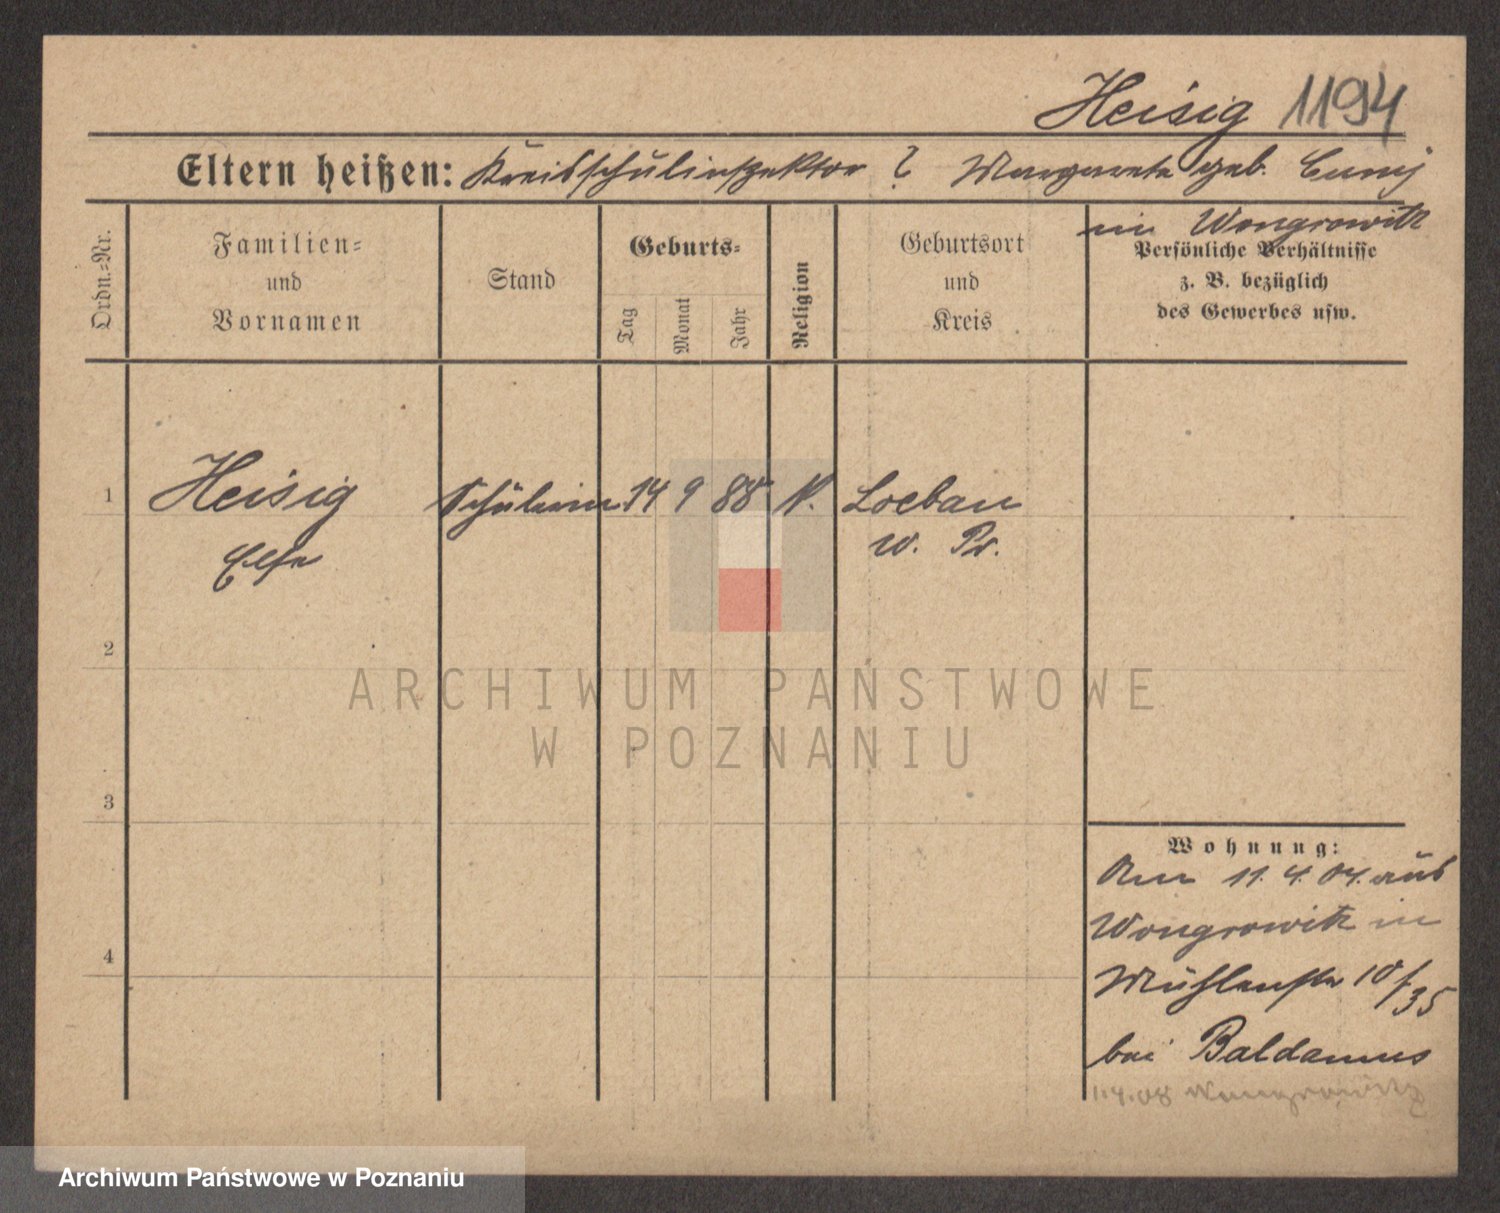 Heisig 1194
Eltern heißen: Kreisschulinspektor ? Margarete geb. Cunij
in Wongrowitz
Ordn.-Nr.
Familien-
und
Vornamen
Stand
Geburts-
Tag
Monat
Jahr
Religion
Geburtsort
und
Kreis
Persönliche Verhältnisse
z. B. bezüglich
des Gewerbes usw.
1 Heisig Schülerin 14 9 88 K. Loebau
Else W. Pr.
2
3
4
ARCHIWUM PAŃSTWOWE
W POZNANIU
Wohnung:
Am 11. 4. 04. aus
Wongrowitz in
Mühlenstr 10/35
bei Baldamus
1.4.08 Wongrowitz
Archiwum Państwowe w Poznaniu